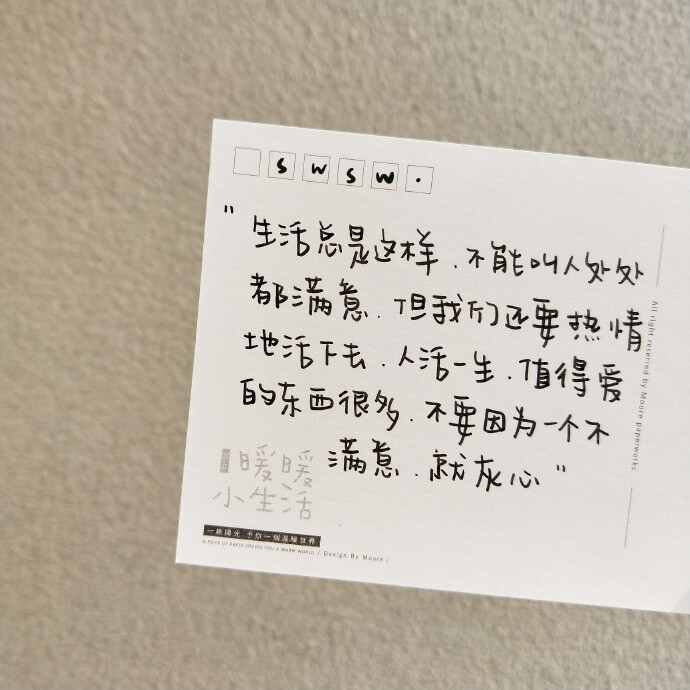 SWSW.
"生活总是这样.不能叫人处处
都满意.但我们还要热情
地活下去.人活一生.值得爱
的东西很多.不要因为一个不
满意.就灰心"
暖暖
小生活
一紙陽光 予你一個溫暖世界
A PIECE OF PAPER OFFERS YOU A WARM WORLD / Design By Moore /
All right reserved by Moore paperworks.